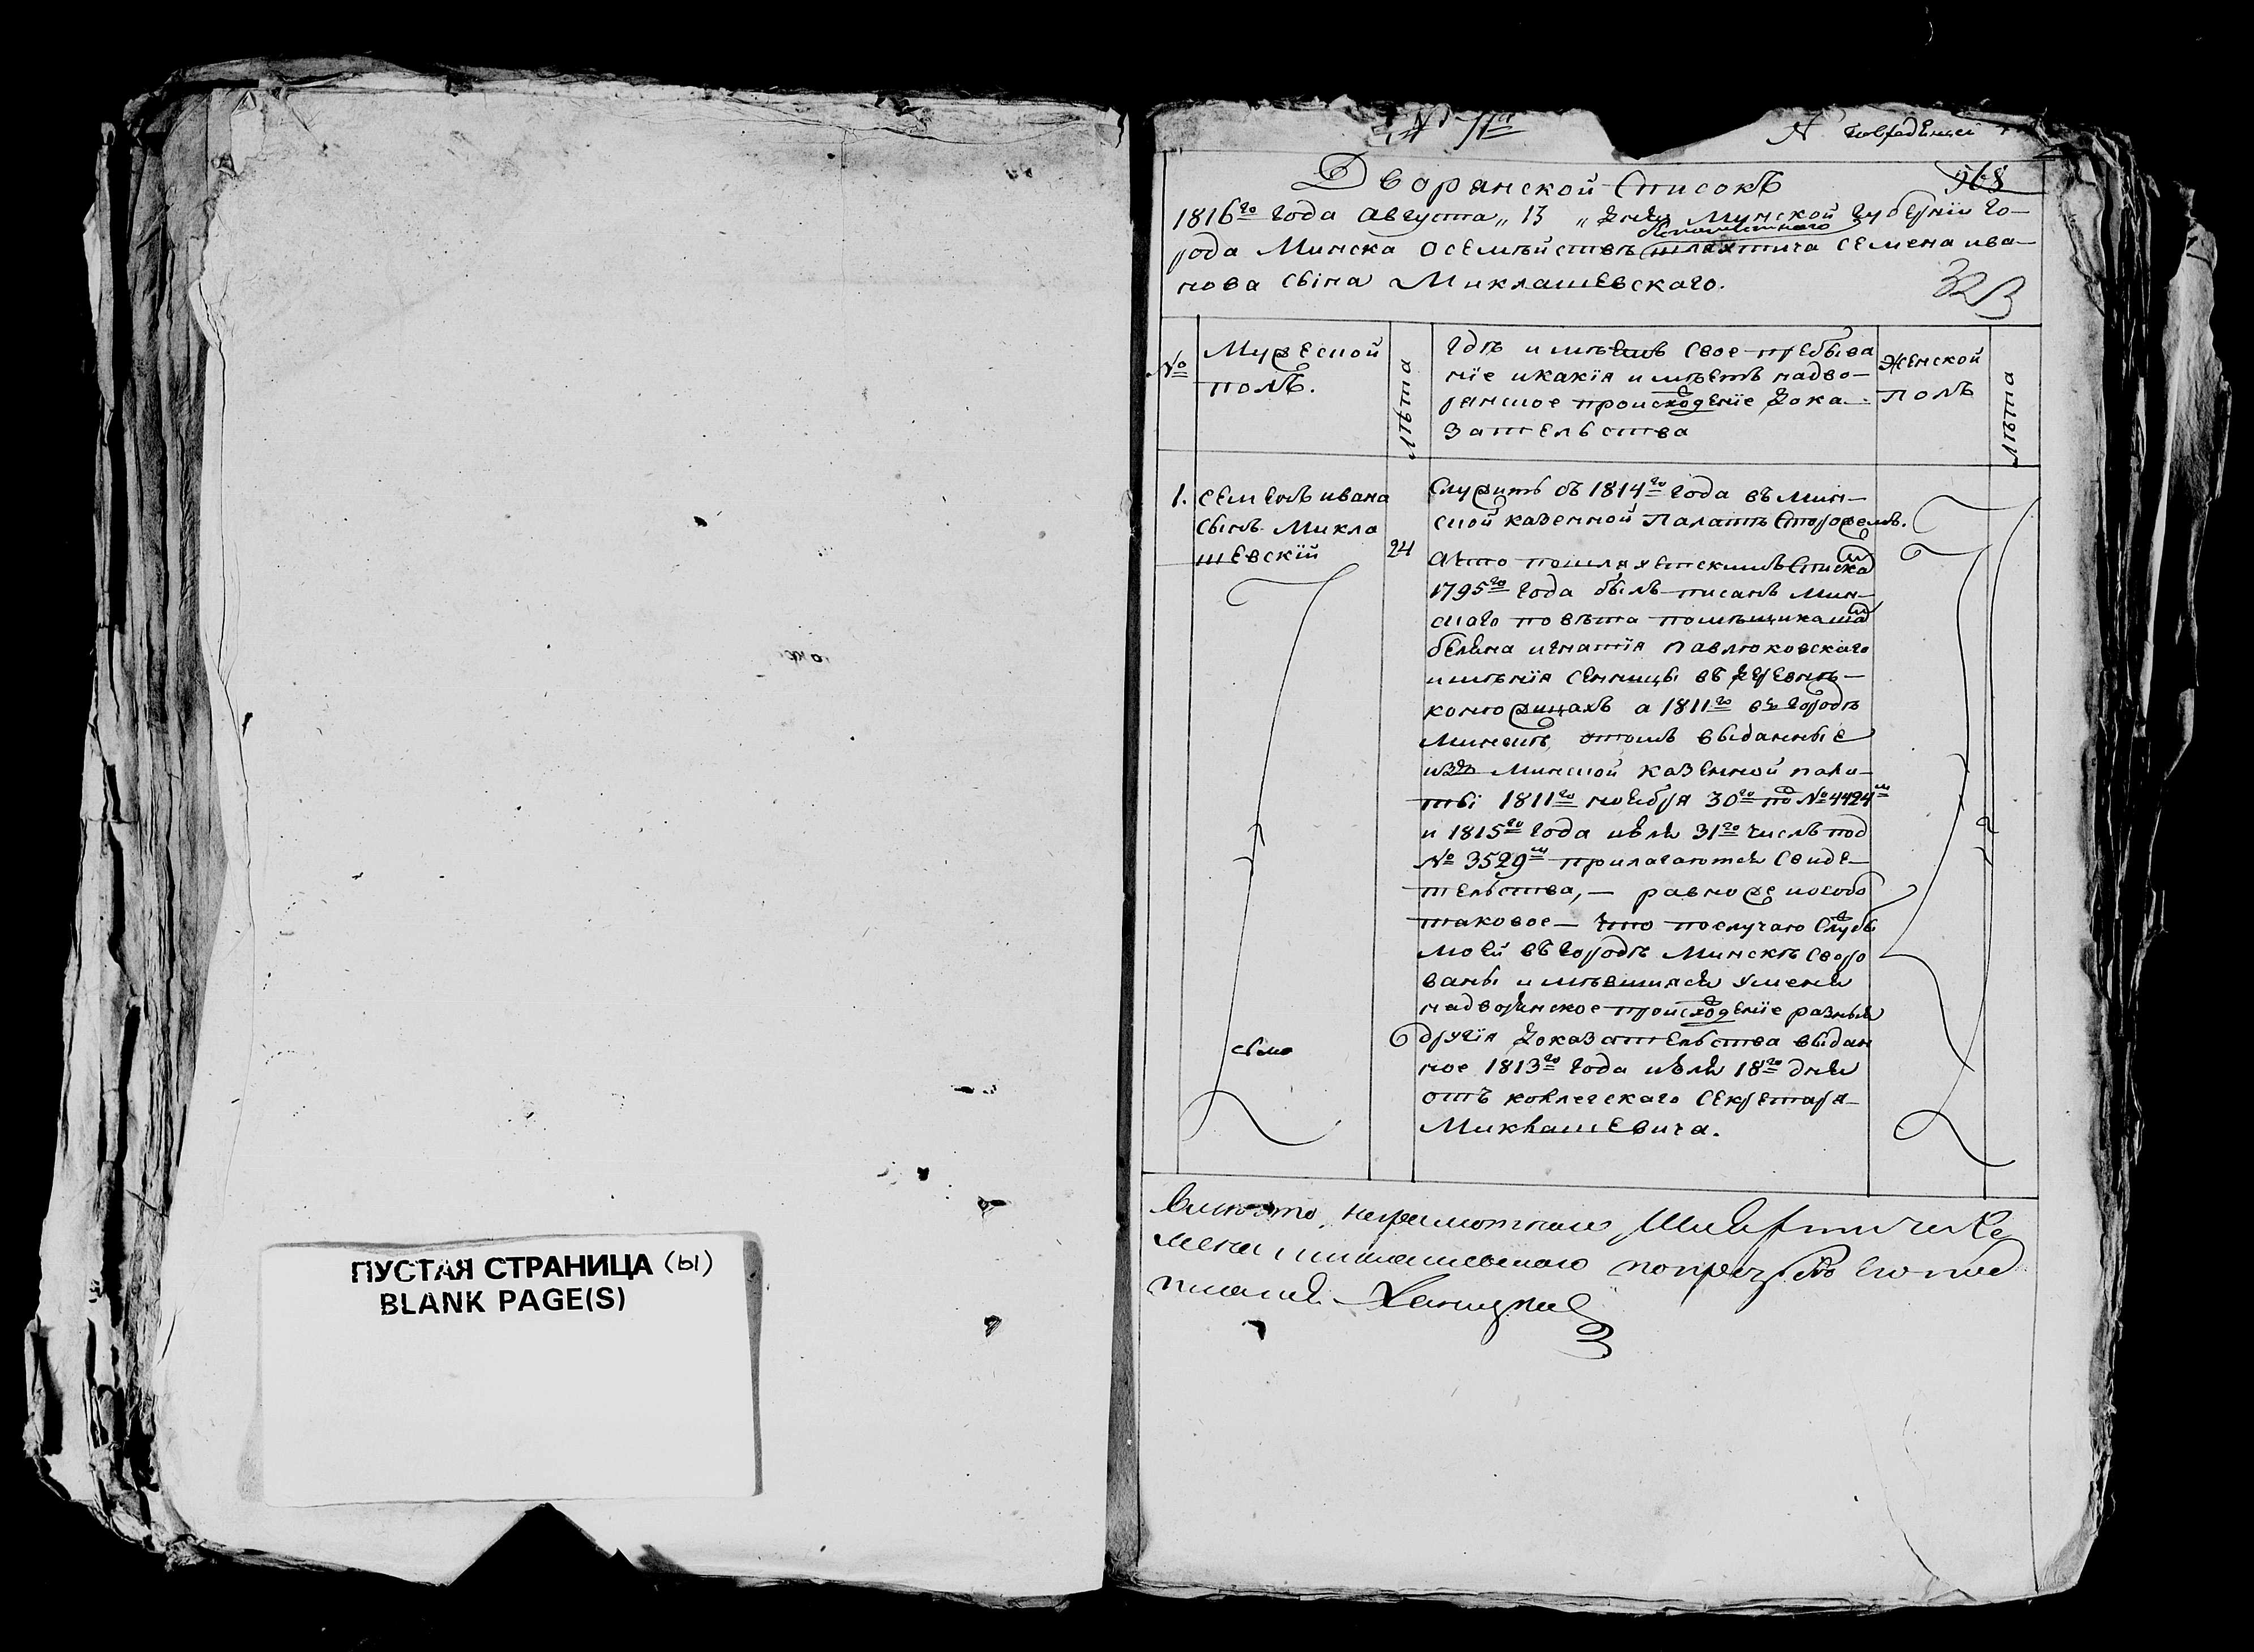 ПУСТАЯ СТРАНИЦА (ы)
BLANK PAGE(S)
568
Дворянской Списокъ
1816го года августа „ 13 „ дня Минской губернїи го-
рода Минска о семѣйствѣ шляхтича семена ива-
нова сына Миклашевскаго.
323
№
Мужеской
полъ.
лѣта
гдѣ имѣетъ свое пребыва
нїе и какїя имѣетъ надво-
рянское происхожденїе дока-
зательства
Женской
полъ
лѣта
1.
семенъ ивана
сынъ Микла
шевскїй
24
служитъ съ 1814го года въ мин-
ской казенной палатѣ сторожемъ.
а что по шляхетскимъ спискамъ
1795го года былъ писанъ мин-
скаго повѣта помѣщика
игнатїя павлюковскаго
имѣнїя сенницы въ деревнѣ-
а 1811го въ городѣ
минскѣ, о томъ выданные
изъ минской казенной пала-
ты 1811го ноября 30го под №4424м
и 1815го года июля 31го числѣ под
№ 3529м прилагаются свиде-
тельства, — равно же и особо
таковое — что по случаю службы
моей въ городѣ минскѣ сворo
ваны имѣвшияся у меня
надворянское происхожденїе разныя
другїя доказательства выдан
ное 1813го года июля 18го дня
отъ коллегскаго секретаря
Миклашевича.
неграмотнаго Шляхтича Се
мена Миклашевскаго по прозьбѣ его под
писался